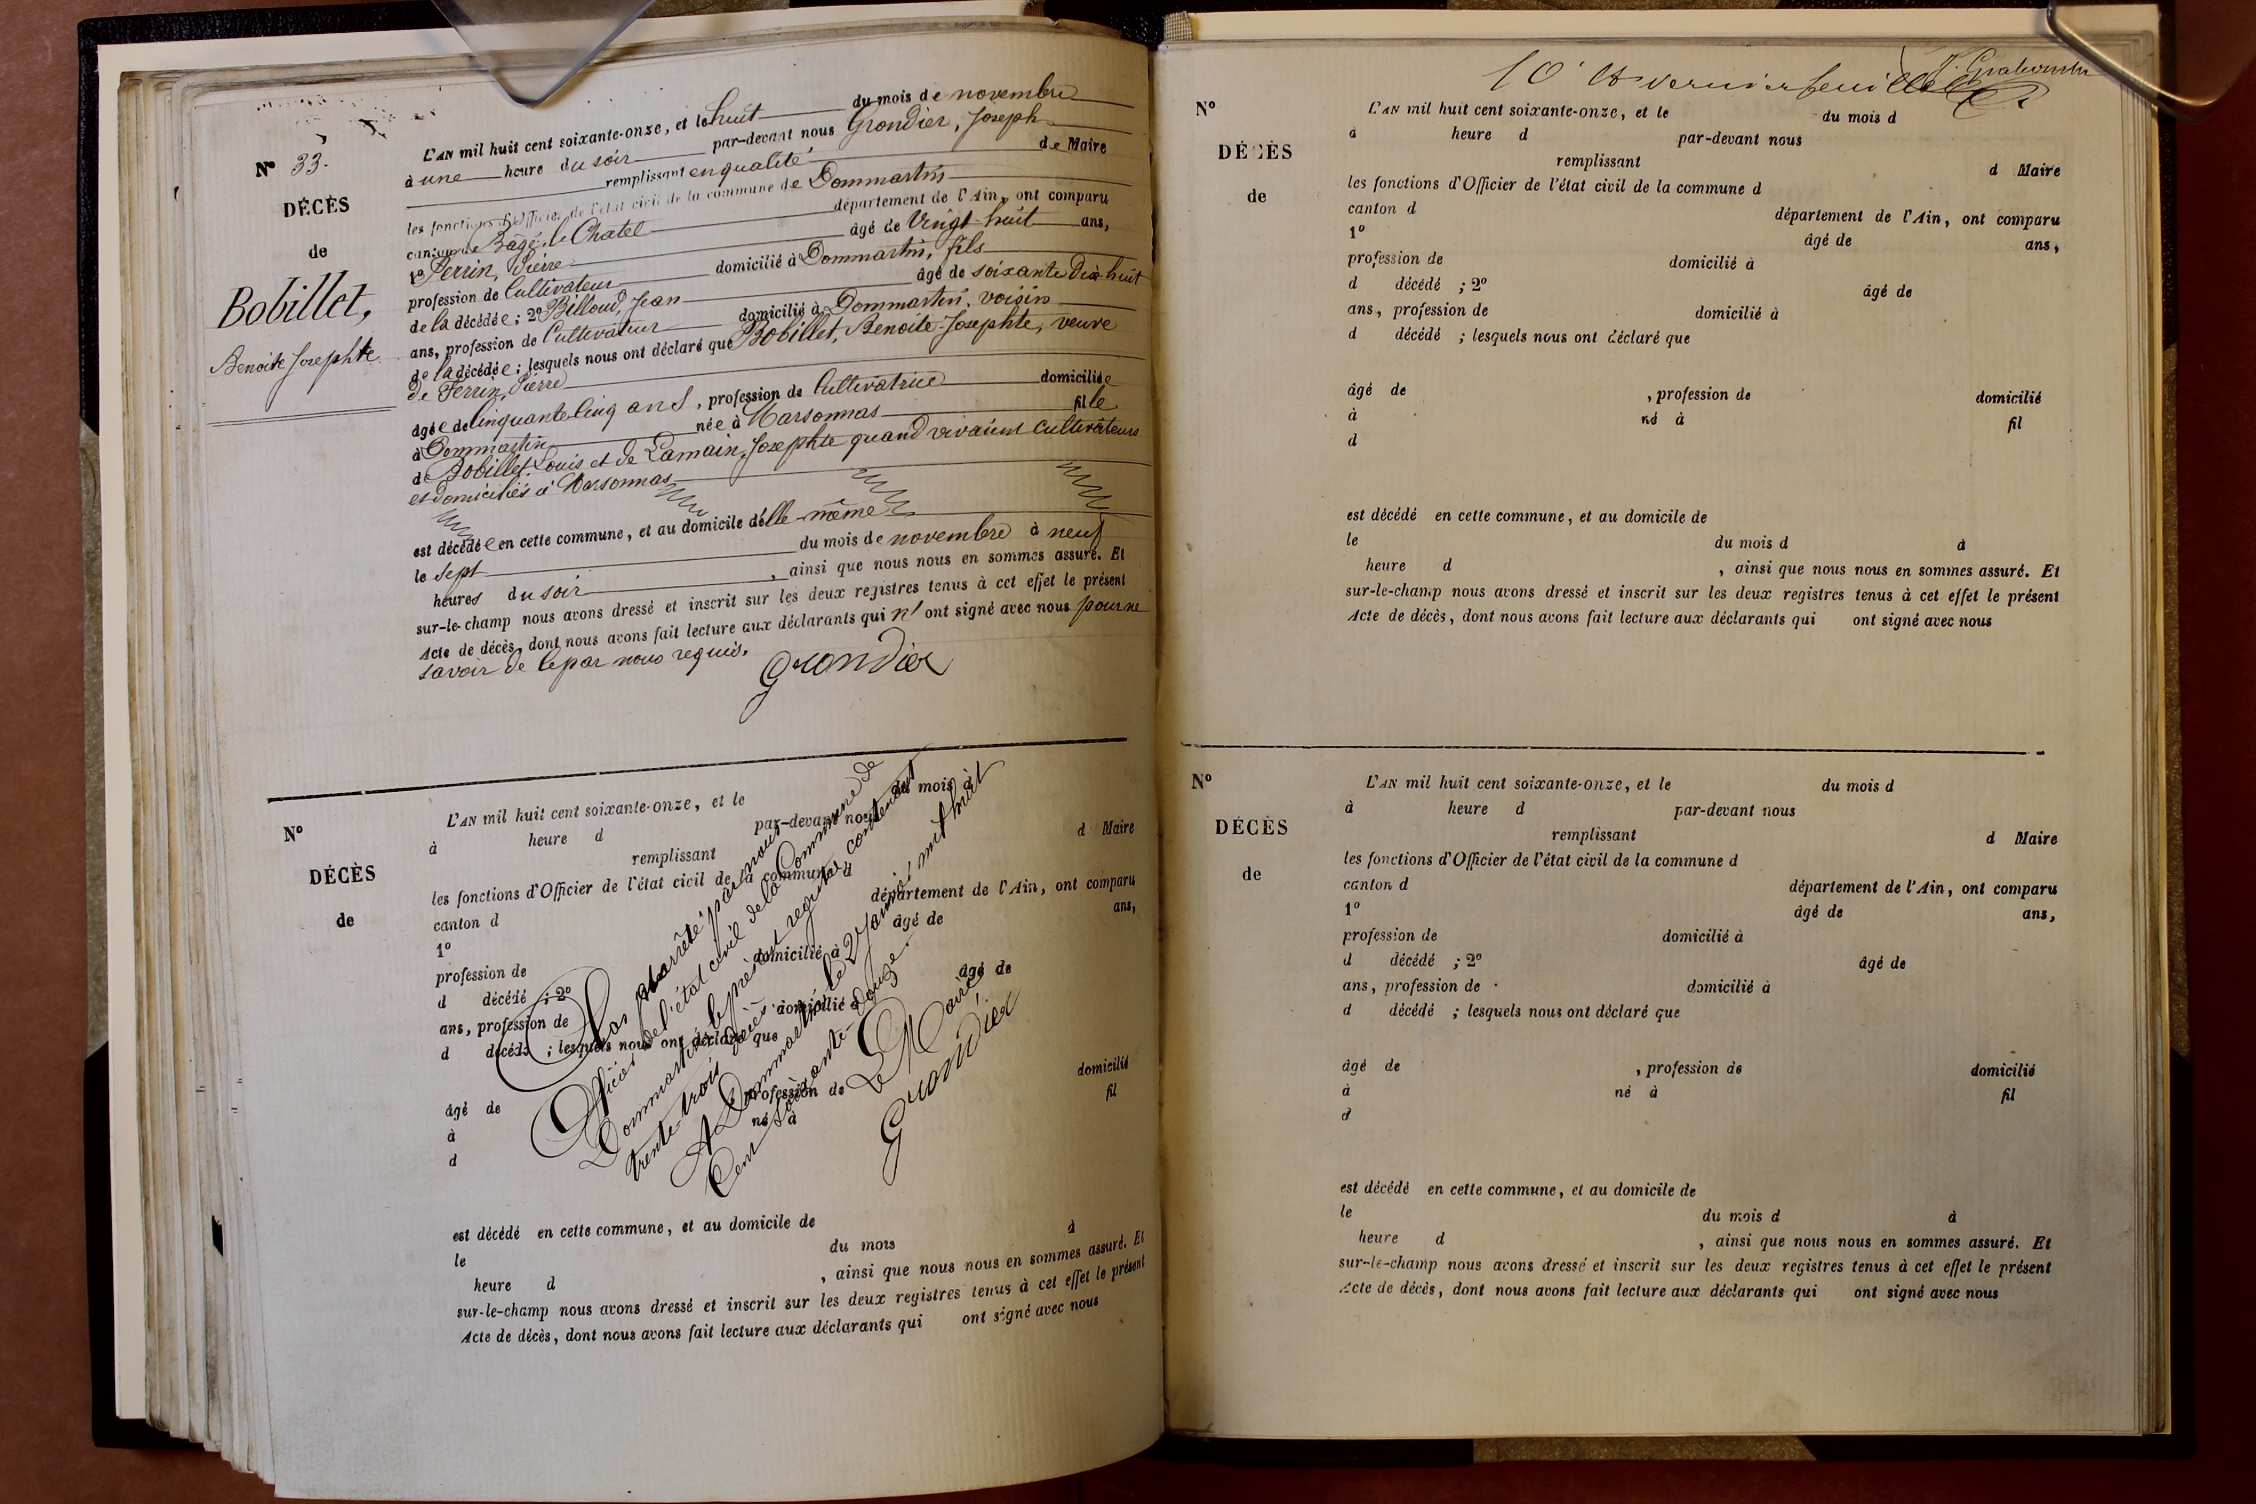 Nº 33.
DÉCÈS
de
Bobillet,
Benoite Josephte
L'AN mil huit cent soixante-onze, et le huit du mois de novembre
à une heure du soir par-devant nous Grondier, Joseph
remplissant en qualité de Maire
les fonctions d'Officier de l'état civil de la commune de Dommartin
canton de Bâgé-le-Chatel département de l'Ain, ont comparu
1º Ferrin, Pierre âgé de Vingt-huit ans,
profession de Cultivateur domicilié à Dommartin, fils
de la décédée ; 2º Billoud, Jean âgé de soixante Dix-huit
ans, profession de Cultivateur domicilié à Dommartin, voisin
de la décédée ; lesquels nous ont déclaré que Bobillet, Benoite-Josephte, veuve
de Ferrin, Pierre
âgée de Cinquante Cinq ans, profession de Cultivatrice domiciliée
à Dommartin née à Marsonnas fille
de Bobillet Louis et de Lamain, Josephte quand vivaient cultivateurs
et domiciliés à Marsonnas
est décédée en cette commune, et au domicile d'elle-même
le sept du mois de novembre à neuf
heures du soir , ainsi que nous nous en sommes assuré. Et
sur-le-champ nous avons dressé et inscrit sur les deux registres tenus à cet effet le présent
Acte de décès, dont nous avons fait lecture aux déclarants qui n' ont signé avec nous pour ne
savoir de ce par nous requis.
Grondier
Nº
DÉCÈS
de
L'AN mil huit cent soixante-onze, et le du mois d
à heure d par-devant nous
remplissant d Maire
les fonctions d'Officier de l'état civil de la commune d
canton d département de l'Ain, ont comparu
1º âgé de ans,
profession de domicilié à
d décédé ; 2º âgé de
ans, profession de domicilié à
d décédé ; lesquels nous ont déclaré que
âgé de , profession de domicilié
à né à fil
d
est décédé en cette commune, et au domicile de
le du mois à
heure d , ainsi que nous nous en sommes assuré. Et
sur-le-champ nous avons dressé et inscrit sur les deux registres tenus à cet effet le présent
Acte de décès, dont nous avons fait lecture aux déclarants qui ont signé avec nous
Clos et arrêté par nous
Officier de l'état civil de la Commune de
Dommartin le présent registre contenant
trente-trois décès
A Dommartin le 2 Janvier mil huit
Cent soixante-Douze.
Le Maire
Grondier
10e et dernier feuillet
Nº
DÉCÈS
de
L'AN mil huit cent soixante-onze, et le du mois d
à heure d par-devant nous
remplissant d Maire
les fonctions d'Officier de l'état civil de la commune d
canton d département de l'Ain, ont comparu
1º âgé de ans,
profession de domicilié à
d décédé ; 2º âgé de
ans, profession de domicilié à
d décédé ; lesquels nous ont déclaré que
âgé de , profession de domicilié
à né à fil
d
est décédé en cette commune, et au domicile de
le du mois d à
heure d , ainsi que nous nous en sommes assuré. Et
sur-le-champ nous avons dressé et inscrit sur les deux registres tenus à cet effet le présent
Acte de décès, dont nous avons fait lecture aux déclarants qui ont signé avec nous
Nº
DÉCÈS
de
L'AN mil huit cent soixante-onze, et le du mois d
à heure d par-devant nous
remplissant d Maire
les fonctions d'Officier de l'état civil de la commune d
canton d département de l'Ain, ont comparu
1º âgé de ans,
profession de domicilié à
d décédé ; 2º âgé de
ans, profession de domicilié à
d décédé ; lesquels nous ont déclaré que
âgé de , profession de domicilié
à né à fil
d
est décédé en cette commune, et au domicile de
le du mois d à
heure d , ainsi que nous nous en sommes assuré. Et
sur-le-champ nous avons dressé et inscrit sur les deux registres tenus à cet effet le présent
Acte de décès, dont nous avons fait lecture aux déclarants qui ont signé avec nous